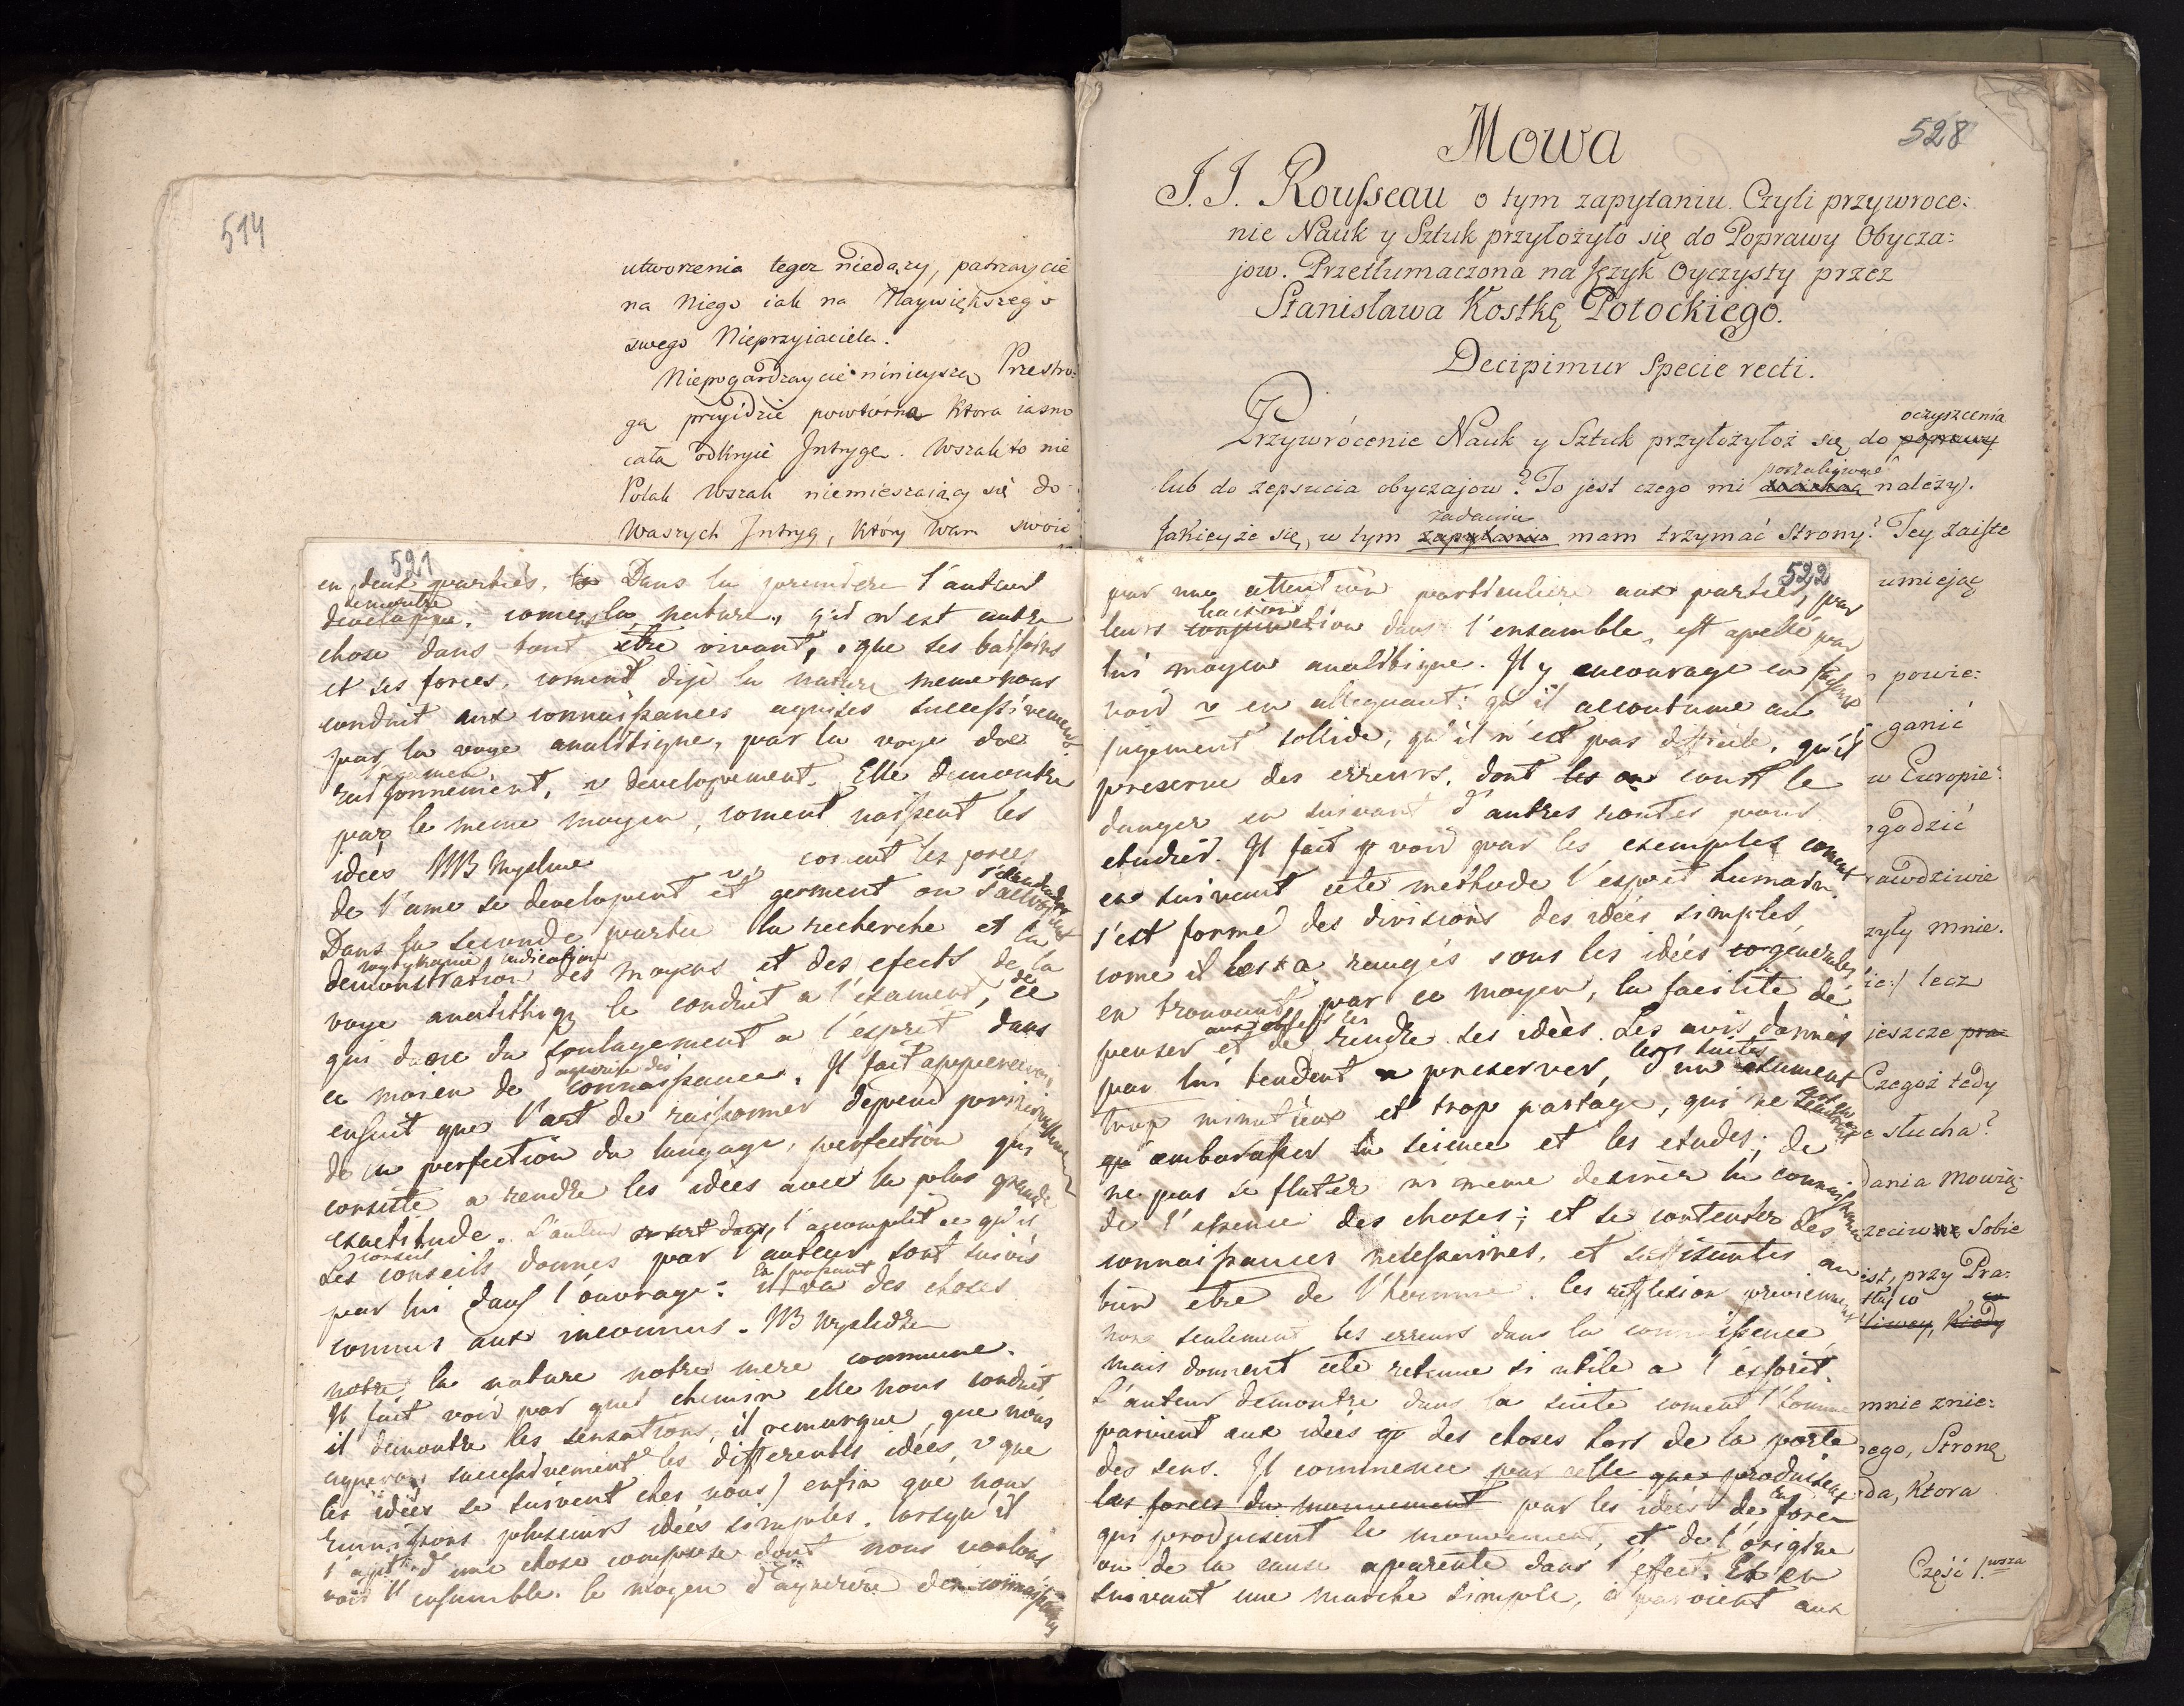 514
utworzenia tegoz niedązy, patrzaycie
na Niego iak na Naywiększego
swego Nieprzyiaciela.
Niepogardzaycie ninieyszą Przestro:
gą przyidzie powtórna Ktora iasno
całą odkryie Intrygę. Wszak to nie
Polak Wszak niemieszaiący się do
Waszych Intryg, Który Wam swoie
521
en deux parties. Dans la premiere l'auteur
demontre
developpe, come la nature, qui n'est autre
chose dans tout être vivant, que ses
et ses forces, coment dije la nature meme nous
conduit aux connaissances aquises successivement
par la voye analitique, par la voye de
l'examen
raisonnement, developement. Elle demontre
par le meme moyen, coment naissent les
idees NB
coment les forces
de l'ame se developent et germent ou
Dans la seconde partie la recherche et la
indication
demonstration des moyens et des efects de la
voye le conduit a l'examen, de ce
qui done du soulagement a l'esprit dans
ce moien de connaissance. Il fait
ensuit que l'art de raisonner depend
de la perfection du langage, perfection qui
consiste a rendre les idées avec la plus grande
exactitude. L'auteur l'accomplit ce qu'il
conseil
Les conseils donnes par l'auteur sont suivis
En passant
par lui dans l'ouvrage: il va des choses
connus aux inconnus. NB
notre la nature notre mere commune.
Il fait voir par quel chemin elle nous conduit,
il demontre les sensations, il remarque que nous
successivement les differentes idées, que
les idées se suivent ches nous) enfin que nous
reunissons plusieurs idées simples. lorsqu'il
s'agit d'une chose compose dont nous voulons
voir l'ensemble. le moyen d'aquerire des connaissances
522
par une attention particuliere aux parties, par
leurs conjunction dans l'ensamble, est apellé par
lui moyen analitique. Il y encourage en faisant
voir en alleguant: qu'il accoutume au
jugement sollide, qu'il n'est pas dificile, qu'il
preserve des erreurs, dont les on court le
danger en suivant d'autres routes pour
etudier. Il fait voir par les exemples coment
en suivant cete methode l'esprit humain
s'est formé des divisions des idées simples,
come il les a rangés sous les idées generales
en trouvant par ce moyen, la facilité de
penser et de rendre ses idées. Les avis donnés
les suites
par lui tendent a preserver, d'un examen
trop minutieux et trop partage, qui ne
qu'embarasser la science et les etudes; de
ne pas se flater ni meme desirer la connaissance
de l'essence des choses; et se contenter des
connaissances necessaires, et suffisantes au
bien etre de l'homme. les reflexion previennent
non seulement les erreurs dans la connaissance,
mais donnent cete retenue si utile a l'esprit.
L'auteur demontre dans la suite coment l'homme
parvient aux idées des choses hors de la porté
des sens. Il commence par celle que produisent
les forces du mouvement par les idées de la force
qui produisent le mouvement, et de l'origine
ou de la cause aparente dans l'efect. Et en
suivant une marche simple, il parvient aux
528
Mowa
J. J. Rousseau o tym zapytaniu. Czyli przywroce:
nie Nauk y Sztuk przyłożyło się do Poprawy Obycza:
jow. Przetłumaczona na Język Oyczysty przez
Stanisława Kostkę Potockiego.
Decipimur Specie recti.
oczyszcenia
Przywrócenie Nauk y Sztuk przyłożyłoż się do poprawy
lub do zepsucia obyczajow? To jest czego mi należy.
zadaniu
Jakieyże się, w tym zapytaniu mam trzymać Strony? Tey zaiste
umiejąc
powie:
ganić
w Europie
godzić
rawdziwie
zyły mnie.
lecz
jeszcze pra
Czegoż tedy
słucha?
dania Mowią:
Sobie
ist, przy Pra:
Kiedy
mnie znie:
ego, Stronę
da, Ktora
Część 1.wsza